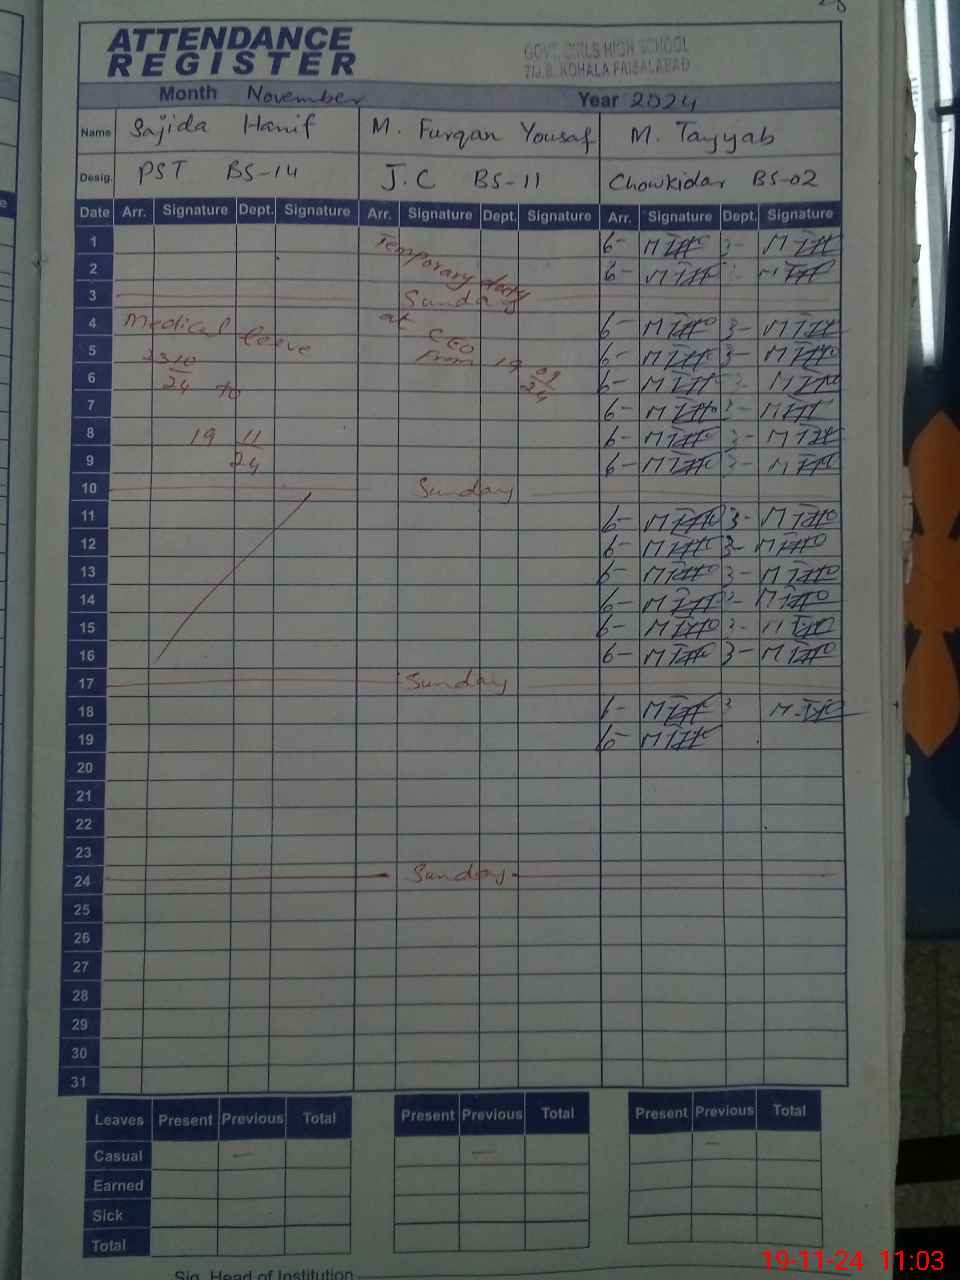 ATTENDANCE
REGISTER
GOVT. GIRLS HIGH SCHOOL
7/J.B. KOHALA FAISALABAD
Month November Year 2024
Name Sajida Hanif M. Furqan Yousaf M. Tayyab
Desig. PST BS-14 J.C BS-11 Chowkidar BS-02
Date Arr. Signature Dept. Signature Arr. Signature Dept. Signature Arr. Signature Dept. Signature
1 Temporary duty 6- 3-
2 6- 3-
3 Sunday
4 Medical leave at CEO 6- 3-
5 2310/24 to From 19 09/24 6- 3-
6 6- 3-
7 6- 3-
8 19 11/24 6- 3-
9 6- 3-
10 Sunday
11 6- 3-
12 6- 3-
13 6- 3-
14 6- 3-
15 6- 3-
16 6- 3-
17 Sunday
18 6- 3
19 6-
20
21
22
23
24 Sunday
25
26
27
28
29
30
31
Leaves Present Previous Total Present Previous Total Present Previous Total
Casual — — —
Earned
Sick
Total
Sig. Head of Institution
19-11-24 11:03